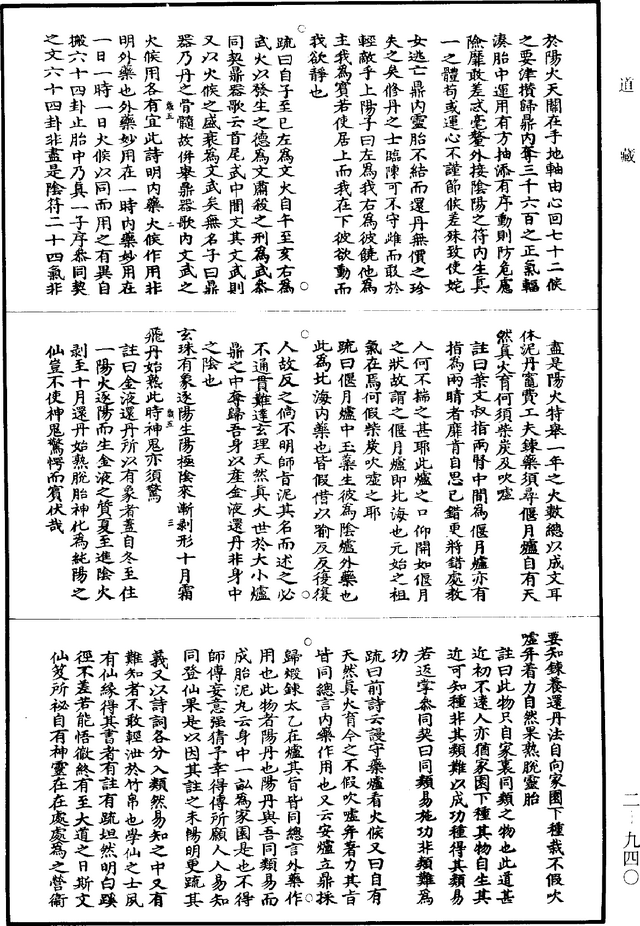 道藏
二—九四〇
於陽火天關在手地軸由心回七十二候
之要津攢歸鼎內奪三千六百之正氣輻
湊胎中運用有方抽添有序動則防危慮
險靡敢差忒毫釐外接陰陽之符內生真
一之體苟或運心不謹節候差殊致使姹
女逃亡鼎內靈胎不結而還丹無價之珍
失之矣修丹之士臨陣可不守雌而敢於
輕敵乎上陽子曰左為我右為彼饒他為
主我為賓若使居上而我在下彼欲動而
我欲靜也
疏曰自子至巳左為文火自午至亥右為
武火以發生之德為文肅殺之刑為武參
同契鼎器歌云首尾武中間文其文武則
又以火候之盛衰為文武矣無名子曰鼎
器乃丹之骨髓故併舉鼎器歌內文武之
火候用各有宜此詩明內藥火候作用非
明外藥也外藥妙用在一時內藥妙用在
一日一時一日火候以同而用之有異自
搬六十四卦止胎中乃真一子序參同契
之文六十四卦非盡是陰符二十四氣非
盡是陽火特舉一年之大數總以成文耳
休泥丹竈費工夫鍊藥須尋偃月爐自有天
然真火育何須柴炭及吹噓
註曰葉文叔指兩腎中間為偃月爐亦有
指為兩睛者靡肯自思己錯更將錯處教
人何不揣之甚耶此爐之口仰開如偃月
之狀故謂之偃月爐即北海也元始之祖
氣在焉何假柴炭吹噓之耶
疏曰偃月爐中玉蘂生彼為陰爐外藥也
此為北海內藥也皆假借以喻反反復復
人故反之倘不明師肯泥其名而述之必
不通貫難達玄理天然真火世於大小爐
鼎之中奪歸吾身以產金液還丹非身中
之陰也
玄珠有象逐陽生陽極陰來漸剥形十月霜
飛丹始熟此時神鬼亦須驚
註曰金液還丹所以有象者蓋自冬至住
一陽火逐陽而生金液之質夏至進陰火
剥至十月還丹始熟脫胎神化為純陽之
仙豈不使神鬼驚愕而賓伏哉
要知鍊養還丹法自向家園下種栽不假吹
噓并着力自然果熟脫靈胎
註曰此物只自家裏同類之物也此道甚
近初不達人亦猶家園下種其物自生其
近可知種非其類難以成功種得其類易
若返掌參同契曰同類易施功非類難為
功
疏曰前詩云謾守藥爐看火候又曰自有
天然真火育今之不假吹噓并著力其旨
皆同總言內藥作用也又云安爐立鼎採
歸煅鍊太乙在爐其旨皆同總言外藥作
用也此物者陽丹也陽丹與吾同類易而
成胎泥九云身中一訟為家園是也不得
師傳妄意強猜予幸得傳所願人人易知
同登仙果是以因其註之未暢明更疏其
義又以詩詞各分入類然易知之中又有
難知者不敢輕泄於竹帛也學仙之士夙
有仙緣得其書者有註有疏坦然明白蹊
徑不差若能悟徹終有至大道之日斯文
仙笈所祕自有神靈在在處處為之營衛